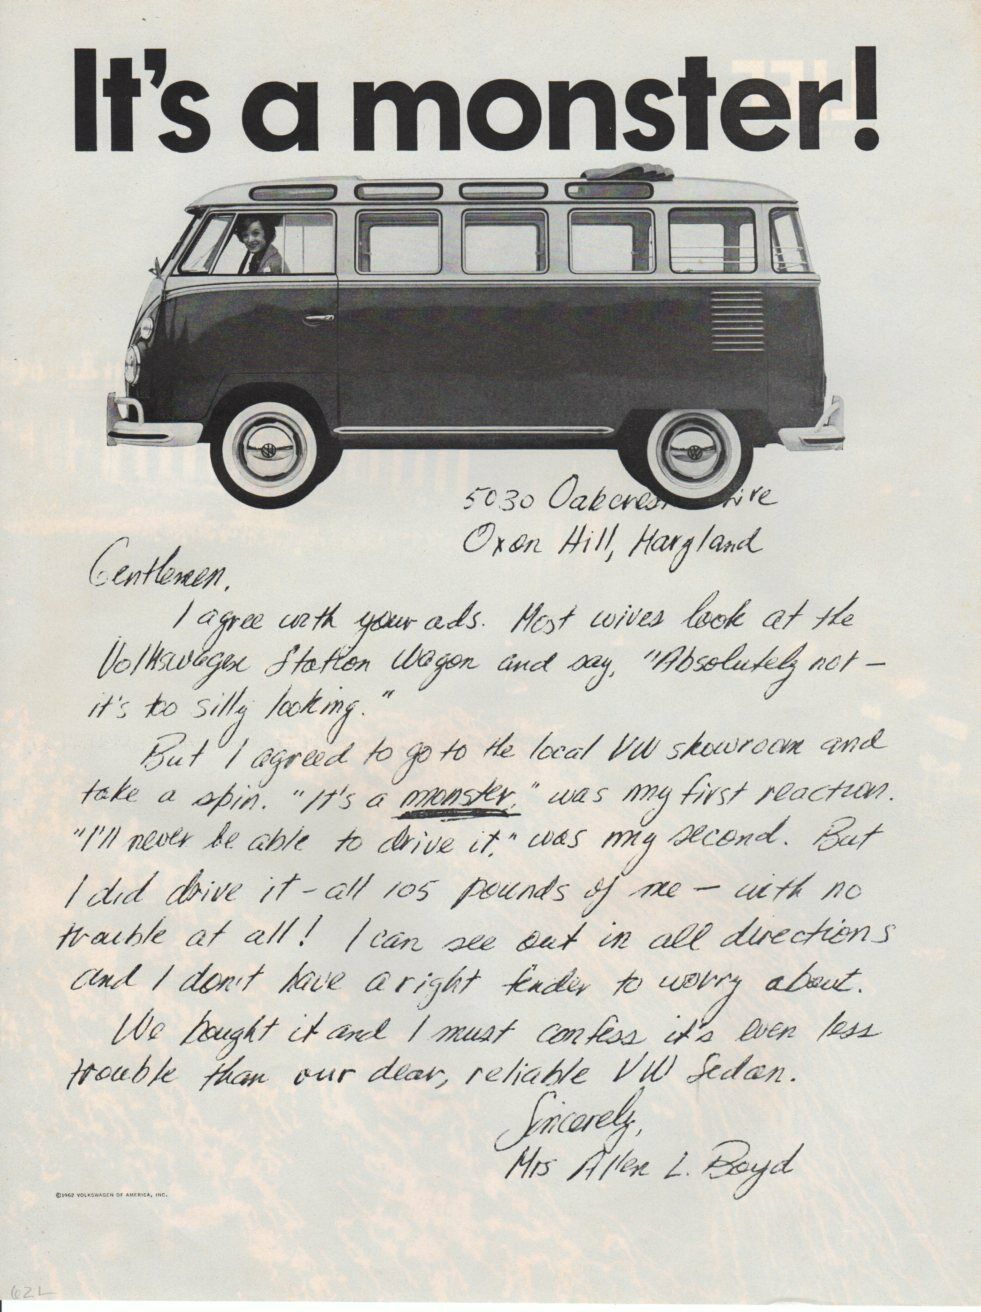 It's a monster!
5030 Oakcrest Drive
Oxon Hill, Maryland
Gentlemen,
I agree with your ads. Most wives look at the
Volkswagen Station Wagon and say, "Absolutely not—
it's too silly looking."
But I agreed to go to the local VW showroom and
take a spin. "It's a monster," was my first reaction.
"I'll never be able to drive it," was my second. But
I did drive it – all 105 pounds of me – with no
trouble at all! I can see out in all directions
and I don't have a right fender to worry about.
We bought it and I must confess it's even less
trouble than our dear, reliable VW Sedan.
Sincerely,
Mrs Allen L. Boyd
©1962 VOLKSWAGEN OF AMERICA, INC.
62L